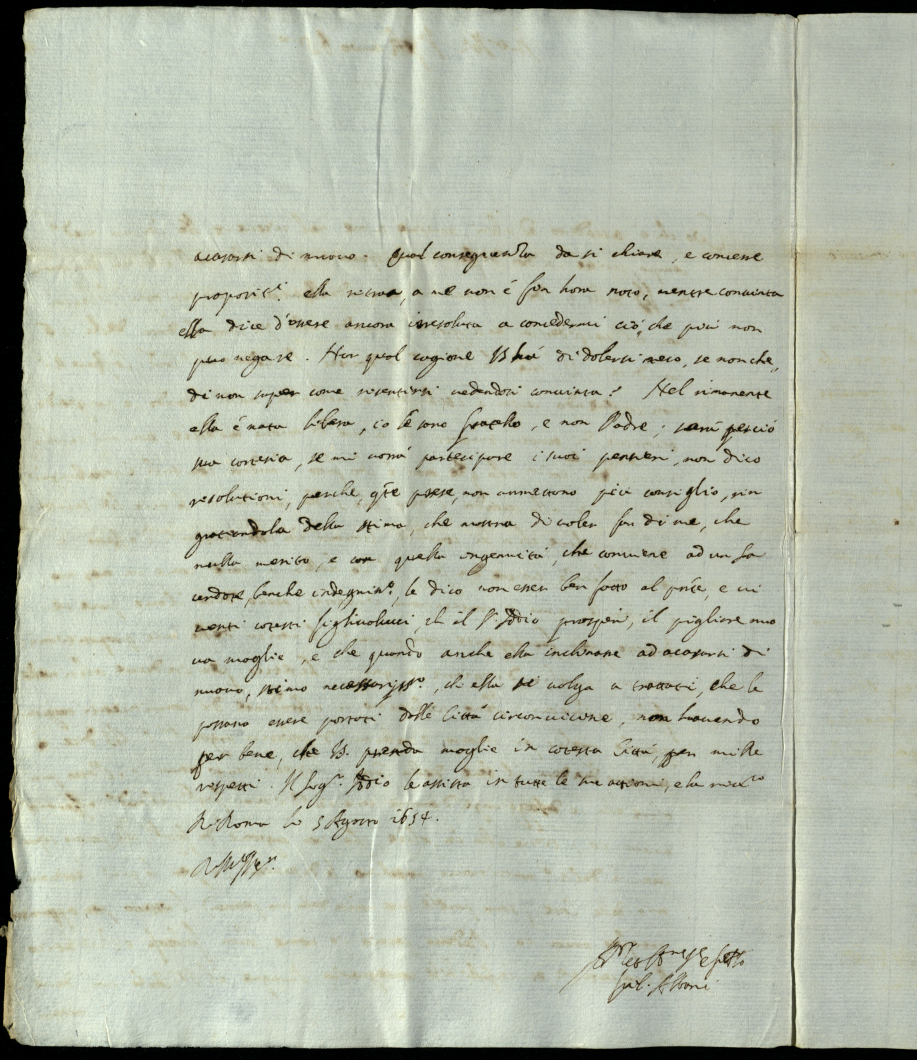 acasarsi di nuovo. Qual conseguenza da sì chiare, e concesse
proposit.i ella ricava, a me non è fin hora noto, mentre convinta
ella dice d'essere ancora irresoluta a concedermi ciò, che più non
può negare. Hor qual cagione di dolersi meco, se non che,
di non saper come risentirsi vedendosi convinta? Nel rimanente
ella è nata libera, io le sono fratello, e non Padre; sarà perciò
sua cortesia, se mi vorrà partecipare i suoi pensieri, non dico
resolutioni, perche, q.te prese, non ammettono più consiglio, rin
gratiandola della stima, che mostra di voler far di me, che
nulla merito, e con quella ingenuità, che conviene ad un Sa
cerdote, benche indegniss.o, le dico non esser ben fatto al pnte, e vi
venti cotesti figlivolucci, ch il S. Iddio prosperi, il pigliare nuo
va moglie, e che quando anche ella inclinasse ad acasarsi di
nuovo, stimo necessariss.o, ch ella si volga a trattati, che le
possano essere portati dalle Città circonvicine, non havendo
per bene, che V.S. prenda moglie in cotesta Città, per mille
rispetti. Il Sig.r Iddio le assista in tutte le sue attioni, e la
Roma li 5 Agosto 1654.